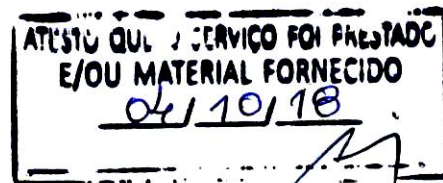 ATESTO QUE O SERVIÇO FOI PRESTADO
E/OU MATERIAL FORNECIDO
04/10/18